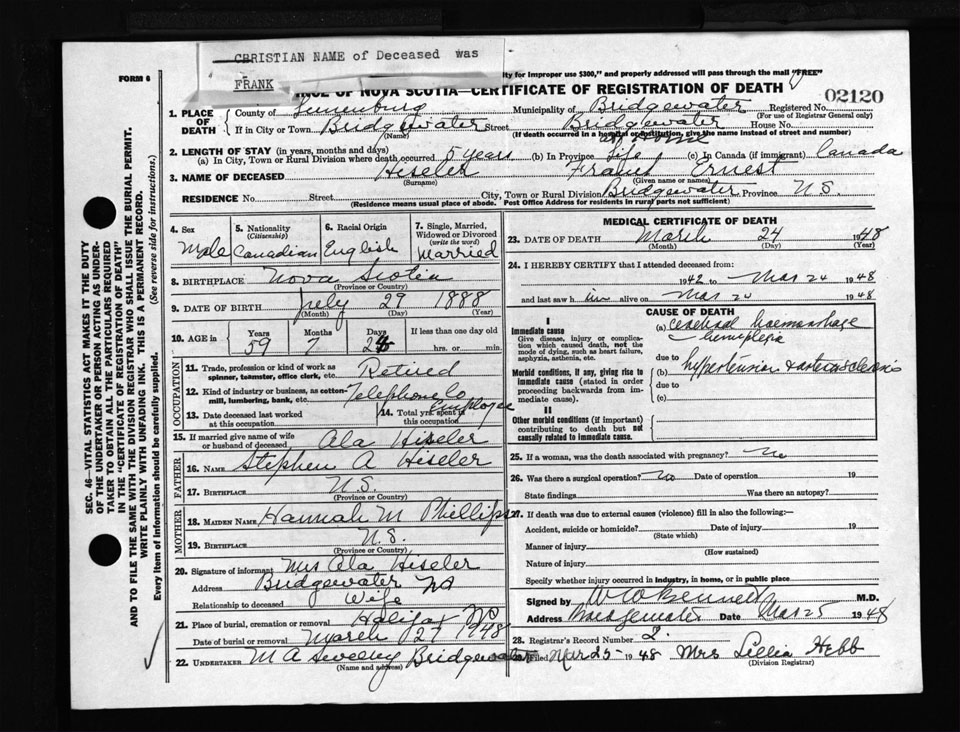 CHRISTIAN NAME of Deceased was
FRANK
FORM 6
ity for improper use $300," and properly addressed will pass through the mail "FREE"
NCE OF NOVA SCOTIA—CERTIFICATE OF REGISTRATION OF DEATH
02120
1. PLACE OF DEATH
County of Lunenburg Municipality of Bridgewater Registered No.
(For use of Registrar General only)
If in City or Town Bridgewater Street Bridgewater House No.
(Name) (If death occurred in a hospital or institution, give the name instead of street and number)
at Home
2. LENGTH OF STAY (in years, months and days)
(a) In City, Town or Rural Division where death occurred 5 years (b) In Province Life (c) In Canada (if immigrant) Canada
3. NAME OF DECEASED Hiseler Ernest
(Surname) (Given name or names)
RESIDENCE No. Street City, Town or Rural Division Bridgewater Province N.S.
(Residence means usual place of abode. Post Office Address for residents in rural parts not sufficient)
4. Sex
Male
5. Nationality
(Citizenship)
Canadian
6. Racial Origin
English
7. Single, Married, Widowed or Divorced
(write the word)
Married
8. BIRTHPLACE Nova Scotia
(Province or Country)
9. DATE OF BIRTH July 29 1888
(Month) (Day) (Year)
10. AGE in
Years Months Days If less than one day old
59 7 hrs. or min.
OCCUPATION
11. Trade, profession or kind of work as spinner, teamster, office clerk, etc. Retired
12. Kind of industry or business, as cotton-mill, lumbering, bank, etc. Telephone Co Employee
13. Date deceased last worked at this occupation
14. Total yrs. spent in this occupation
15. If married give name of wife or husband of deceased Ala Hiseler
FATHER
16. NAME Stephen A Hiseler
17. BIRTHPLACE N.S.
(Province or Country)
MOTHER
18. MAIDEN NAME Hannah M Phillips
19. BIRTHPLACE N.S.
(Province or Country)
20. Signature of informant Mrs Ala Hiseler
Address Bridgewater NS
Relationship to deceased Wife
21. Place of burial, cremation or removal Halifax NS
Date of burial or removal March 27 1948
22. UNDERTAKER M A Sweeny Bridgewater
(Name and address)
MEDICAL CERTIFICATE OF DEATH
23. DATE OF DEATH March 24 1948
(Month) (Day) (Year)
24. I HEREBY CERTIFY that I attended deceased from:
1942 to Mar 24 1948
and last saw him alive on Mar 24 1948
CAUSE OF DEATH
I
Immediate cause
Give disease, injury or complication which caused death, not the mode of dying, such as heart failure, asphyxia, asthenia, etc.
(a) cerebral haemorrhage
hemiplegia
due to
Morbid conditions, if any, giving rise to immediate cause (stated in order proceeding backwards from immediate cause).
(b) hypertension & arteriosclerosis
due to
(c)
II
Other morbid conditions (if important) contributing to death but not causally related to immediate cause.
25. If a woman, was the death associated with pregnancy? No
26. Was there a surgical operation? No Date of operation 19
State findings Was there an autopsy?
27. If death was due to external causes (violence) fill in also the following:—
Accident, suicide or homicide? Date of injury 19
(State which)
Manner of injury
(How sustained)
Nature of injury
Specify whether injury occurred in industry, in home, or in public place
Signed by W W Bennett M.D.
Address Bridgewater Date Mar 25 1948
28. Registrar's Record Number 2.
Filed Mar 25- 1948 Mrs Lillia Hebb
(Division Registrar)
SEC. 46—VITAL STATISTICS ACT MAKES IT THE DUTY
OF THE UNDERTAKER OR PERSON ACTING AS UNDER-
TAKER TO OBTAIN ALL THE PARTICULARS REQUIRED
IN THE "CERTIFICATE OF REGISTRATION OF DEATH"
AND TO FILE THE SAME WITH THE DIVISION REGISTRAR WHO SHALL ISSUE THE BURIAL PERMIT.
WRITE PLAINLY WITH UNFADING INK. THIS IS A PERMANENT RECORD.
Every item of information should be carefully supplied. (See reverse side for instructions.)